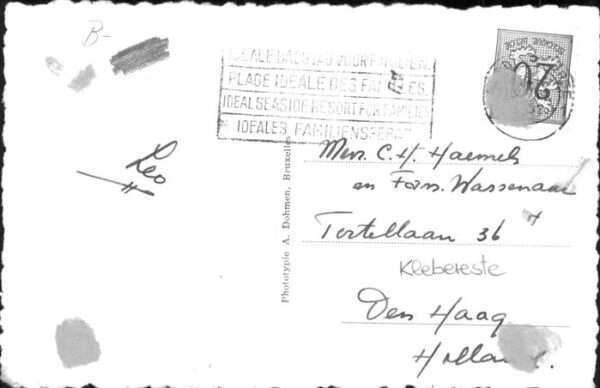 B-
PLAGE IDEALE DES FAMILLES.
IDEAL SEASIDE RESORT FOR FAMILIES
IDEALES FAMILIENSEEBAD
20
Leo
Phototypie A. Dohmen, Bruxelles
Mevr. C. H.
en Fam. Wassenaar
Tortellaan 36
Klebereste
Den Haag
Holland.